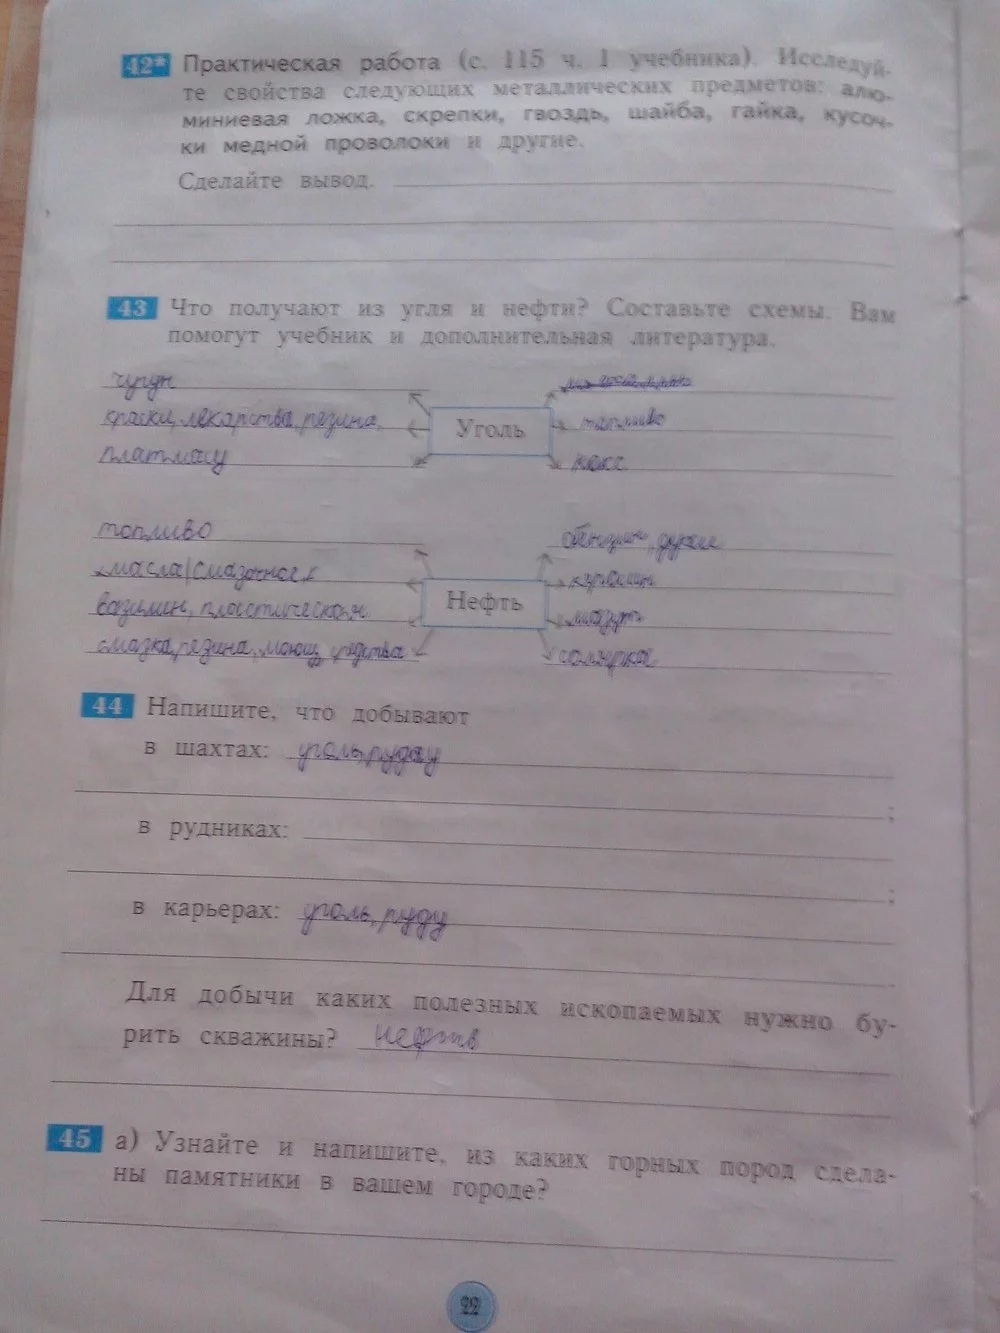 42* Практическая работа (с. 115 ч. 1 учебника). Исследуй-
те свойства следующих металлических предметов: алю-
миниевая ложка, скрепки, гвоздь, шайба, гайка, кусоч-
ки медной проволоки и другие.
Сделайте вывод.
43 Что получают из угля и нефти? Составьте схемы. Вам
помогут учебник и дополнительная литература.
чугун
краски, лекарства, резина,
платмасу
Уголь
топливо
кокс
топливо
масла/смазочное/
вазилин, пластическая
смазка, резина, моющ средства
Нефть
бензин, духи
керосин
мазут
солярка
44 Напишите, что добывают
в шахтах: уголь, руду
;
в рудниках:
;
в карьерах: уголь, руду
.
Для добычи каких полезных ископаемых нужно бу-
рить скважины? нефть
45 а) Узнайте и напишите, из каких горных пород сдела-
ны памятники в вашем городе?
22